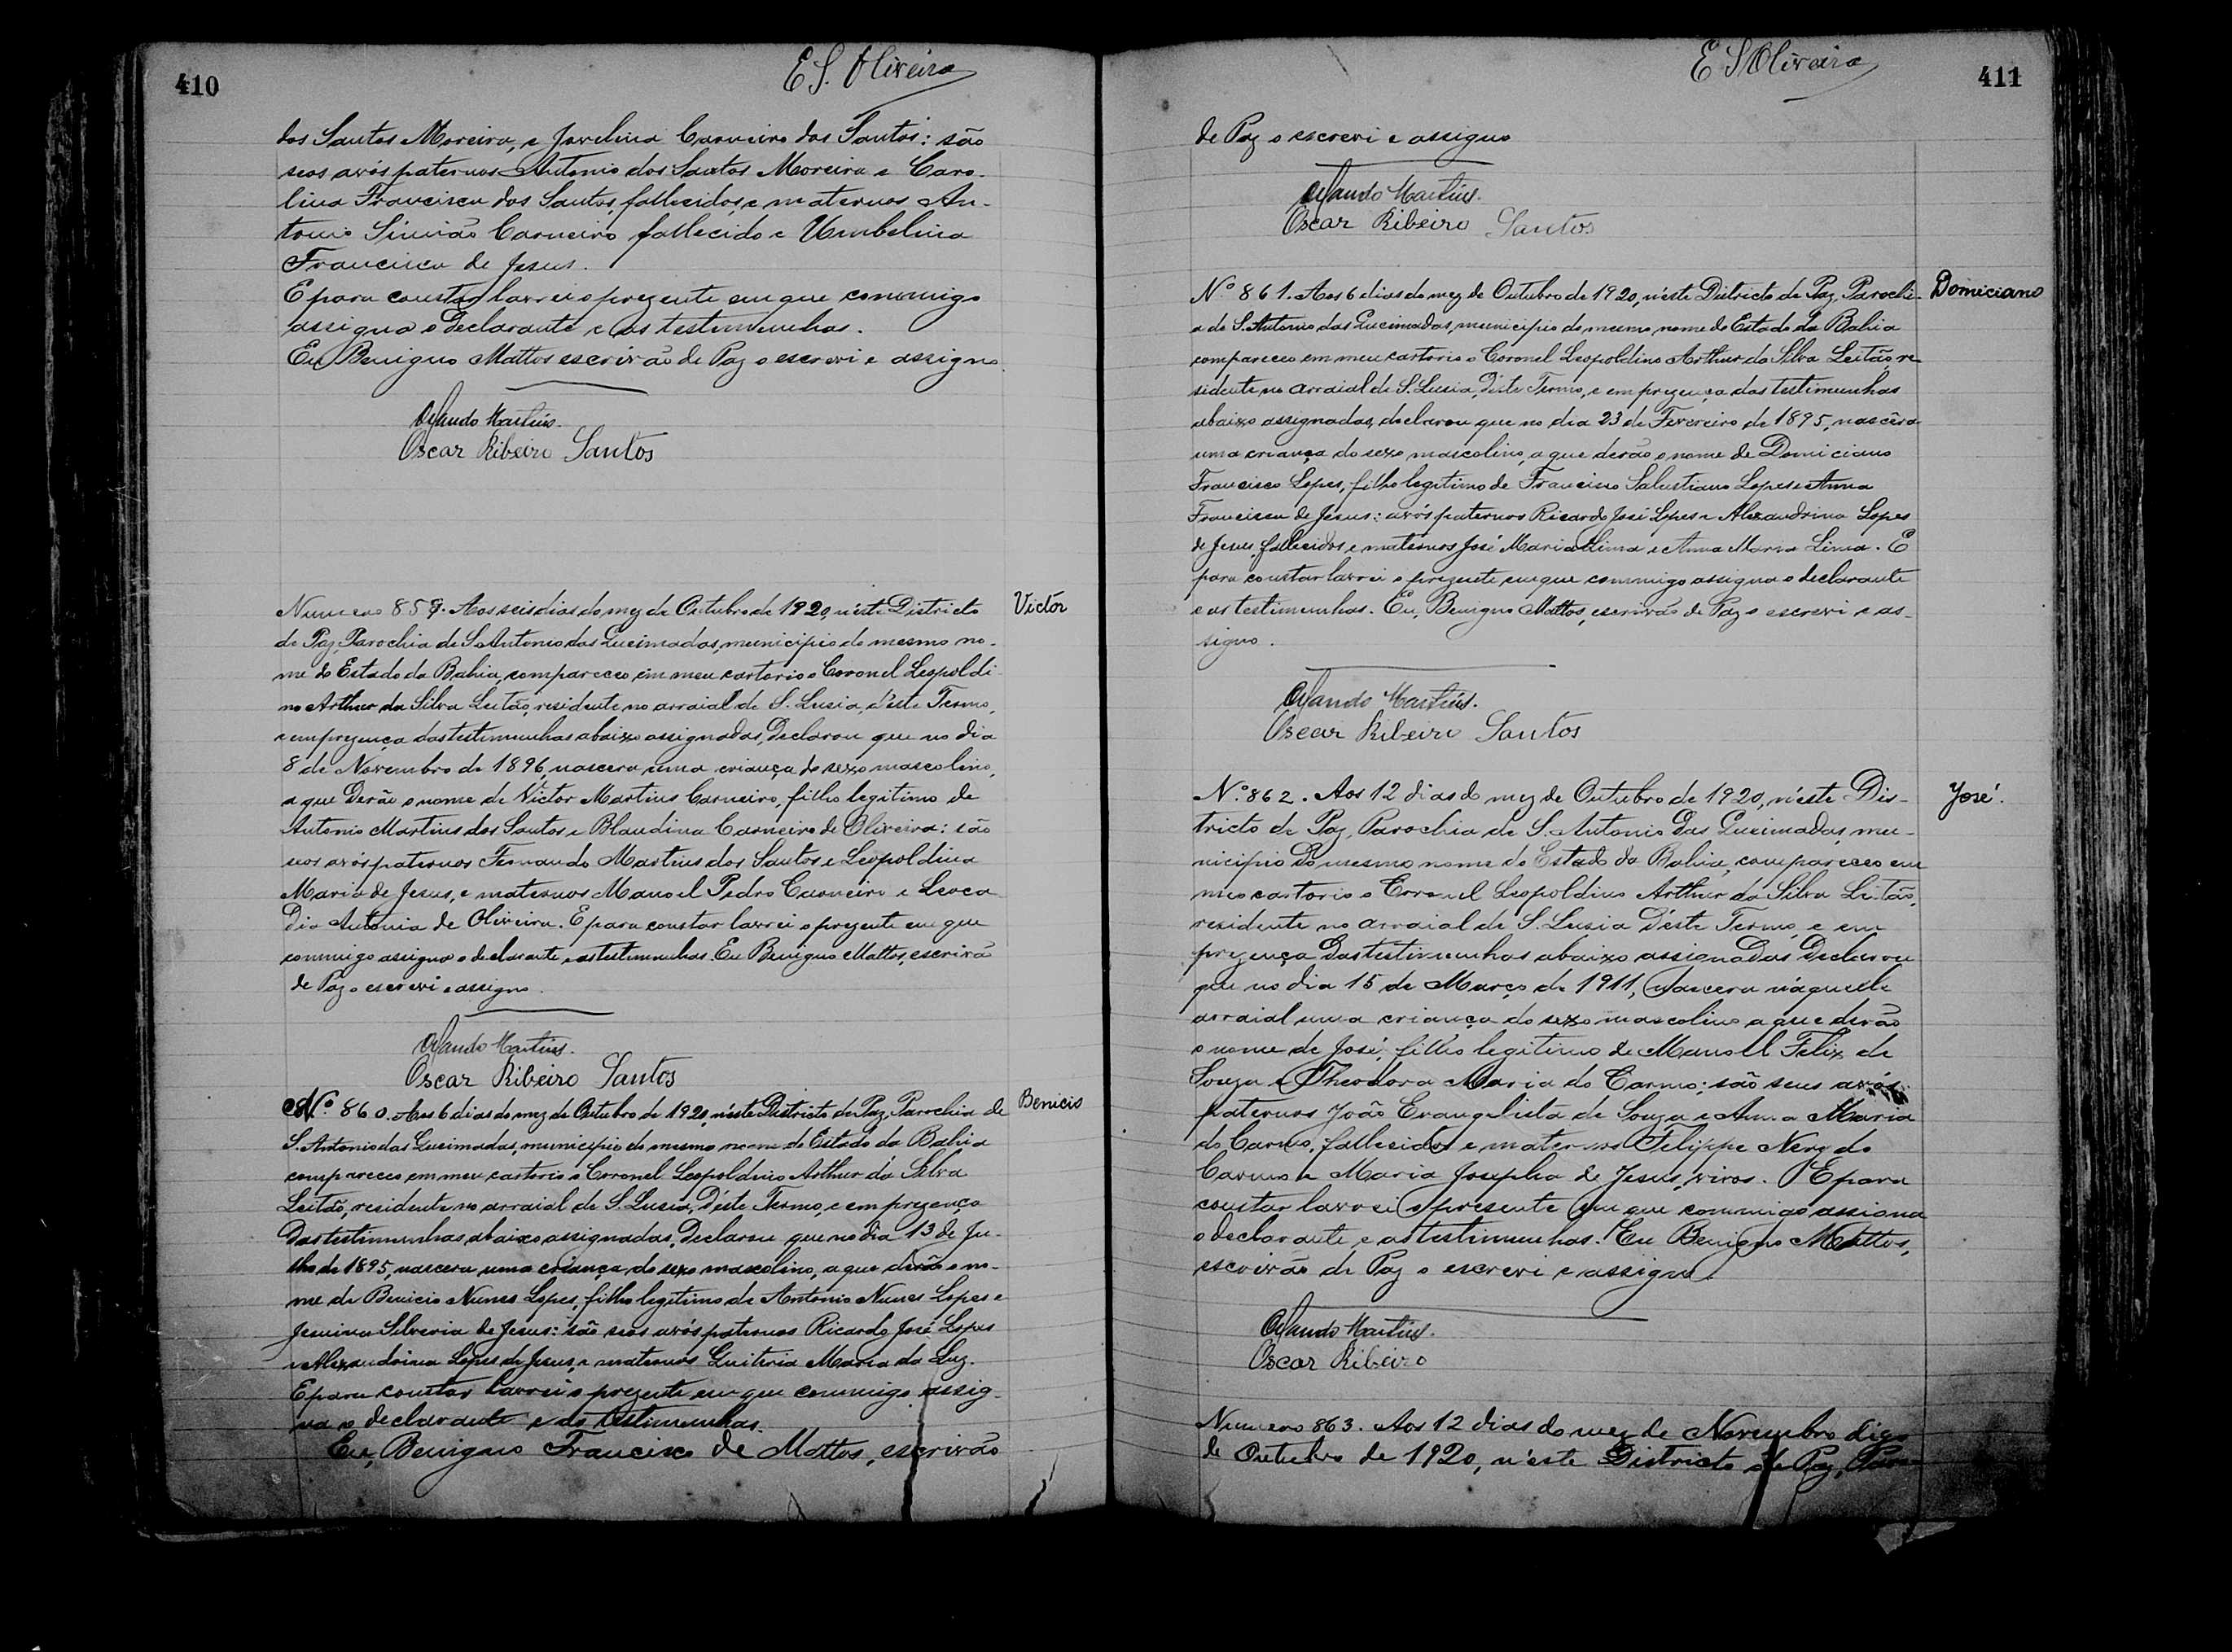 410
E S. Oliveira
dos Santos Moreira, e Jovelina Carneiro dos Santos: são
seos avós paternos Antonio dos Santos Moreira e Caro-
lina Francisca dos Santos, fallecidos, e maternos An-
tonio Simião Carneiro fallecido e Umbelina
Francisca de Jesus.
E para constar lavrei o prezente em que commigo
assigna o declarante e as testimunhas.
Eu Benigno Mattos escrivão de Paz o escrevi e assigno.
Orlando Martins.
Oscar Ribeiro Santos
Numero 859. Aos seis dias do mez de Outubro de 1920, n'éste Districto
Victor
de Paz, Parochia de S. Antonio das Queimadas, municipio do mesmo no-
me do Estado da Bahia, compareceo em meu cartorio o Coronel Leopoldi-
no Arthur da Silva Leitão, residente no arraial de S. Lusia, d'éste Termo,
e em prezença das testimunhas abaixo assignadas, declarou que no dia
8 de Novembro de 1896, nascera uma criança do sexo mascolino,
a que derão o nome de Victor Martins Carneiro, filho legitimo de
Antonio Martins dos Santos e Blandina Carneiro de Oliveira: são
seos avós paternos Fernando Martins dos Santos e Leopoldina
Maria de Jesus, e maternos Manoel Pedro Carneiro e Leoca-
dia Antonia de Oliveira. E para constar lavrei o prezente em que
commigo assigna o declarante e as testimunhas. Eu Benigno Mattos, escrivão
de Paz o escrevi e assigno.
Orlando Martins.
Oscar Ribeiro Santos
Nº 860. Aos 6 dias do mez de Outubro de 1920, n'éste Districto de Paz, Parochia de
Benicio
S. Antonio das Queimadas, municipio do mesmo nome do Estado da Bahia
compareceo em meu cartorio o Coronel Leopoldino Arthur da Silva
Leitão, residente no arraial de S. Lusia, d'éste Termo, e em prezença
das testimunhas abaixo assignadas, declarou que no dia 13 de Ju-
lho de 1895, nascera uma criança do sexo mascolino, a que derão o no-
me de Benicio Nunes Lopes, filho legitimo de Antonio Nunes Lopes e
Silveria de Jesus: são seos avós paternos Ricardo José Lopes
e Alexandrina Lopes de Jesus, e maternos Guiteria Maria da Luz.
E para constar lavrei o prezente em que commigo assig-
na o declarante e as testimunhas.
Eu, Benigno Francisco de Mattos, escrivão
E S Oliveira
411
de Paz o escrevi e assigno
Orlando Martins.
Oscar Ribeiro Santos
Nº 861. Aos 6 dias do mez de Outubro de 1920, n'éste Districto de Paz, Parochi-
Domiciano
a de S. Antonio das Queimadas, municipio do mesmo nome do Estado da Bahia
compareceo em meu cartorio o Coronel Leopoldino Arthur da Silva Leitão, re-
sidente no arraial de S. Lusia, d'éste Termo, e em prezença das testimunhas
abaixo assignadas, declarou que no dia 23 de Fevereiro de 1895, nascêra
uma criança do sexo mascolino, a que derão o nome de Domiciano
Francisco Lopes, filho legitimo de Francisco Salustiano Lopes e Anna
Francisca de Jesus: avós paternos Ricardo José Lopes e Alexandrina Lopes
de Jesus, fallecidos e maternos José Maria Lima e Anna Maria Lima. E
para constar lavrei o prezente em que commigo assigna o declarante
e as testimunhas. Eu, Benigno Mattos, escrivão de Paz o escrevi e as-
signo.
Orlando Martins.
Oscar Ribeiro Santos
Nº 862. Aos 12 dias do mez de Outubro de 1920, n'éste Dis-
José.
tricto de Paz, Parochia de S. Antonio das Queimadas, mu-
nicipio do mesmo nome do Estado da Bahia, compareceo em
meo cartorio o Coronel Leopoldino Arthur da Silva Leitão,
residente no arraial de S. Lusia d'éste Termo, e em
prezença das testimunhas abaixo assignadas declarou
que no dia 15 de Março de 1911, nascera n'aquelle
arraial uma criança do sexo mascolino a que derão
o nome de José, filho legitimo de Manoel Felix de
Souza e Theodora Maria do Carmo; são seus avós
paternos João Evangelista de Souza e Anna Maria
do Carmo, fallecidos e maternos Felippe Nery do
Carmo e Maria Josepha de Jesus, vivos. E para
constar lavrei o presente em que commigo assigna
o declarante, e as testimunhas. Eu Benigno Mattos,
escrivão de Paz o escrevi e assigno.
Orlando Martins.
Oscar Ribeiro
Numero 863. Aos 12 dias do mez de Novembro digo
de Outubro de 1920, n'éste Districto de Paz, Paro-